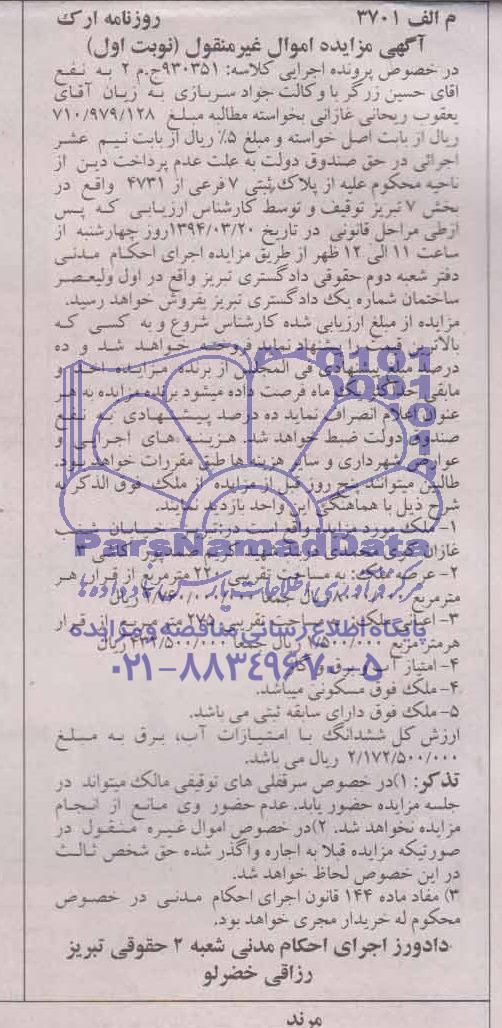 م الف ۳۷۰۱ روزنامه ارک
آگهی مزایده اموال غیرمنقول (نوبت اول)
در خصوص پرونده اجرایی کلاسه: ۹۳۰۳۵۱ج.م ۲ به نفع
اقای حسین زرگر با وکالت جواد سربازی به زیان آقای
یعقوب ریحانی غازانی بخواسته مطالبه مبلغ ۷۱۰/۹۷۹/۱۲۸
ریال از بابت اصل خواسته و مبلغ ۵٪ ریال از بابت نیم عشر
اجرائی در حق صندوق دولت به علت عدم پرداخت دین از
ناحیه محکوم علیه از پلاک ثبتی ۷ فرعی از ۴۷۳۱ واقع در
بخش ۷ تبریز توقیف و توسط کارشناس ارزیابی که پس
ازطی مراحل قانونی در تاریخ ۱۳۹۴/۰۳/۲۰روز چهارشنبه از
ساعت ۱۱ الی ۱۲ ظهر از طریق مزایده اجرای احکام مدنی
دفتر شعبه دوم حقوقی دادگستری تبریز واقع در اول ولیعصر
ساختمان شماره یک دادگستری تبریز بفروش خواهد رسید.
مزایده از مبلغ ارزیابی شده کارشناس شروع و به کسی که
بالاترین قیمت را پیشنهاد نماید فروخته خواهد شد و ده
درصد مبلغ پیشنهادی فی المجلس از برنده مزایده اخذ و
مابقی حداکثر یک ماه فرصت داده میشود برنده مزایده به هر
عنوان اعلام انصراف نماید ده درصد پیشنهادی به نفع
صندوق دولت ضبط خواهد شد. هزینه های اجرایی و
عوارض شهرداری و سایر هزینه ها طبق مقررات خواهد بود.
طالبین میتوانند پنج روز قبل از مزایده از ملک فوق الذکر به
شرح ذیل با هماهنگی این واحد بازدید نمایند.
۱- ملک مورد مزایده واقع است در: تبریز خیابان شنب
غازان کوی محمدی کاشی ۳
۲- عرصه ملک: به مساحت تقریبی ۲۲۰ مترمربع از قرار هر
مترمربع ریال جمعا ریال
۳- اعیانی ملک: به مساحت تقریبی ۲۷۵ متر مربع از قرار
هرمترمربع ۱/۵۰۰/۰۰۰ ریال جمعا ریال
۴- امتیاز آب و برق و گاز
۴- ملک فوق مسکونی میباشد.
۵- ملک فوق دارای سابقه ثبتی می باشد.
ارزش کل ششدانگ با امتیازات آب، برق به مبلغ
۲/۱۷۲/۵۰۰/۰۰۰ ریال می باشد.
تذکر: ۱)در خصوص سرقفلی های توقیفی مالک میتواند در
جلسه مزایده حضور یابد. عدم حضور وی مانع از انجام
مزایده نخواهد شد. ۲)در خصوص اموال غیره منقول در
صورتیکه مزایده قبلا به اجاره واگذر شده حق شخص ثالث
در این خصوص لحاظ خواهد شد.
۳) مفاد ماده ۱۴۴ قانون اجرای احکام مدنی در خصوص
محکوم له خریدار مجری خواهد بود.
دادورز اجرای احکام مدنی شعبه ۲ حقوقی تبریز
رزاقی خضرلو
مرند
ParsNamadData
پایگاه اطلاع رسانی مناقصه و مزایده
۰۲۱-۸۸۳۴۹۶۷۰-۵